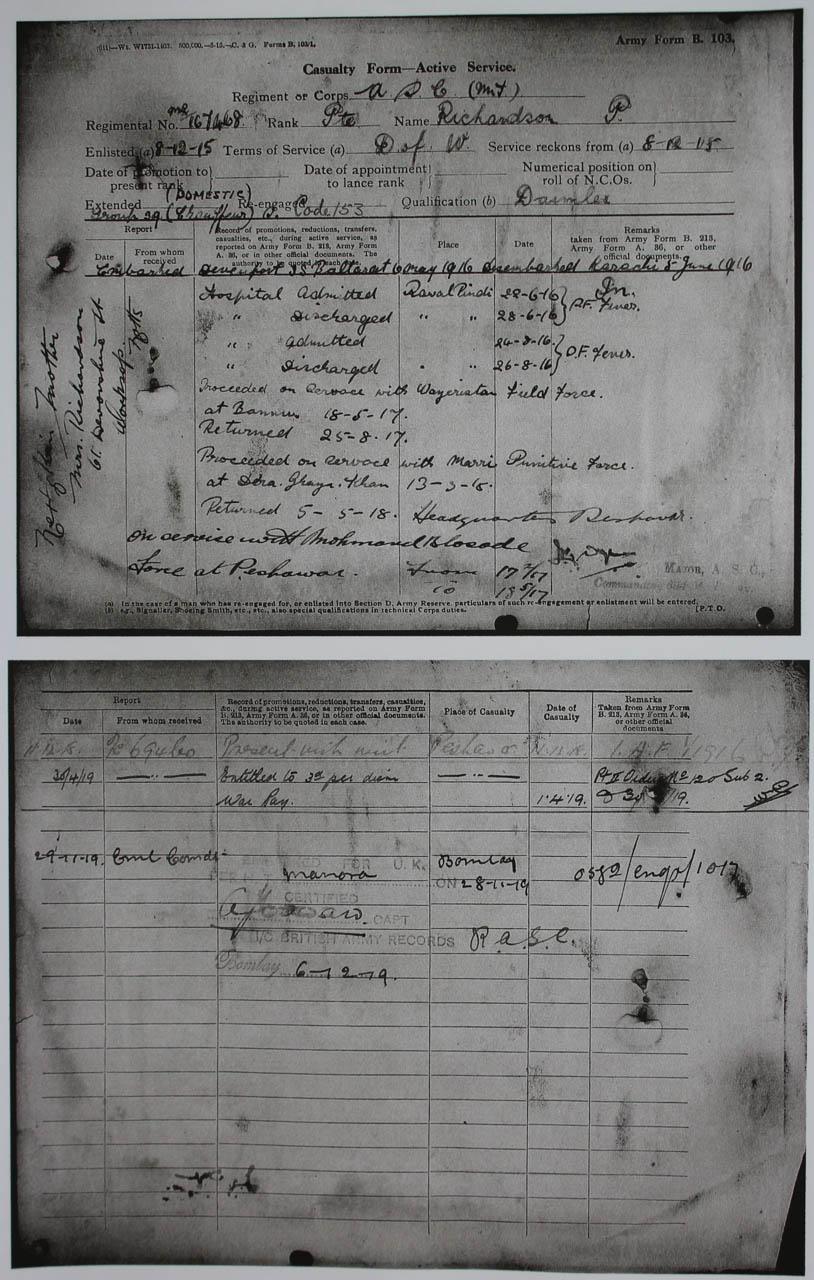 (611)—Wt. W1731-1103. 500,000.—5-15.—C. & G. Forms B. 103/1.
Army Form B. 103.
Casualty Form—Active Service.
Regiment or Corps A S C (M.T)
Regimental No. 167468 Rank Pte Name Richardson P.
Enlisted (a) 8-12-15 Terms of Service (a) D of W. Service reckons from (a) 8-12-15
Date of promotion to present rank } Date of appointment to lance rank } Numerical position on roll of N.C.Os. }
(DOMESTIC)
Extended Re-engaged Code 153 Qualification (b) Daimler
Group 29 (Chauffeur)
Report
Date
From whom received
Record of promotions, reductions, transfers, casualties, etc., during active service, as reported on Army Form B. 213, Army Form A. 36, or in other official documents. The authority to be quoted in each case.
Place
Date
Remarks
taken from Army Form B. 213, Army Form A. 36, or other official documents.
Embarked Devenport SS Ballarat 6 May 1916 Disembarked Karachi 5 June 1916
Hospital Admitted Raval Pindi 22-6-16
" Discharged " " 28-6-16 } P.F. Fever.
" Admitted 24-8-16
" Discharged " " 26-8-16 } D.F. Fever.
Proceeded on Servace with Wazeristan Field Force.
at Bannu 18-5-17.
Returned 25-8-17.
Proceeded on servace with Marri Punitive Force.
at Dera. Ghazi. Khan 13-3-18.
Returned 5-5-18. Headquarters Peshavar.
on service with Mohmand Blocade
Force at Peshawar. From 17
To
Major, A. S. C.,
Next of kin Mother
Mrs. Richardson
61 Devonshire St
Worksop
Notts
(a) In the case of a man who has re-engaged for, or enlisted into Section D, Army Reserve, particulars of such re-engagement or enlistment will be entered.
(b) e.g., Signaller, Shoeing Smith, etc., etc., also special qualifications in technical Corps duties.
[P.T.O.
Report
Date
From whom received
Record of promotions, reductions, transfers, casualties, &c., during active service, as reported on Army Form B. 213, Army Form A. 36, or in other official documents. The authority to be quoted in each case.
Place of Casualty
Date of Casualty
Remarks
Taken from Army Form B. 213, Army Form A. 36, or other official documents
Present with unit
30/4/19 —"— Entitled to 3d per diem —"— Pt II Order No 120 Sub 2.
War Pay. 1.4.19.
29-11-19. Embarked FOR U.K. Bombay
PER H.T. Manora ON 28-11-19
CERTIFIED
CAPT
I/C BRITISH ARMY RECORDS R.A.S.C.
Bombay 6-12-19.